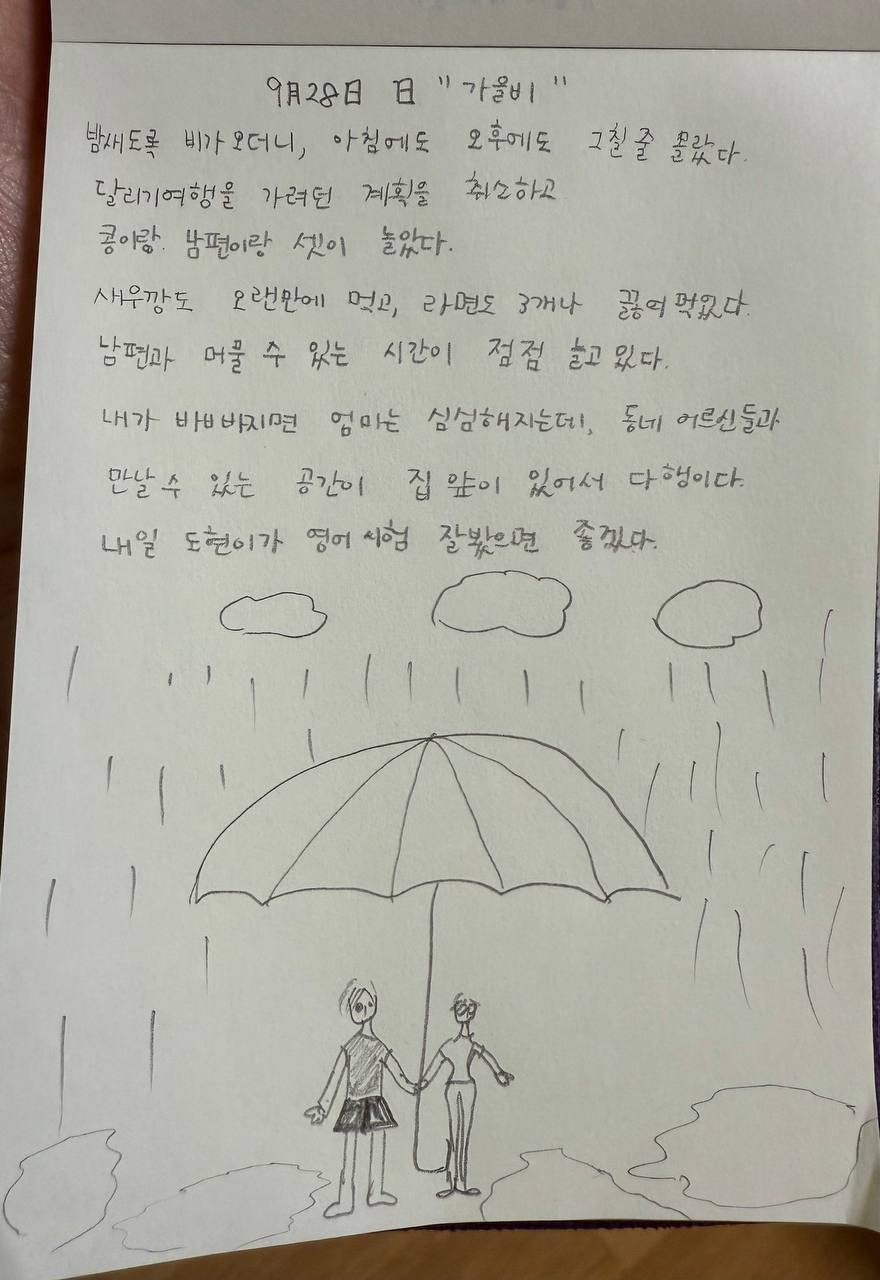 9月28日 日 "가을비"
밤새도록 비가오더니, 아침에도 오후에도 그칠줄 몰랐다.
달리기여행을 가려던 계획을 취소하고
콩이랑. 남편이랑 셋이 놀았다.
새우깡도 오랜만에 먹고, 라면도 3개나 끓여먹었다.
남편과 머물 수 있는 시간이 점점 늘고있다.
내가 바빠지면 엄마는 심심해지는데, 동네 어르신들과
만날 수 있는 공간이 집 앞이 있어서 다행이다.
내일 도현이가 영어시험 잘봤으면 좋겠다.